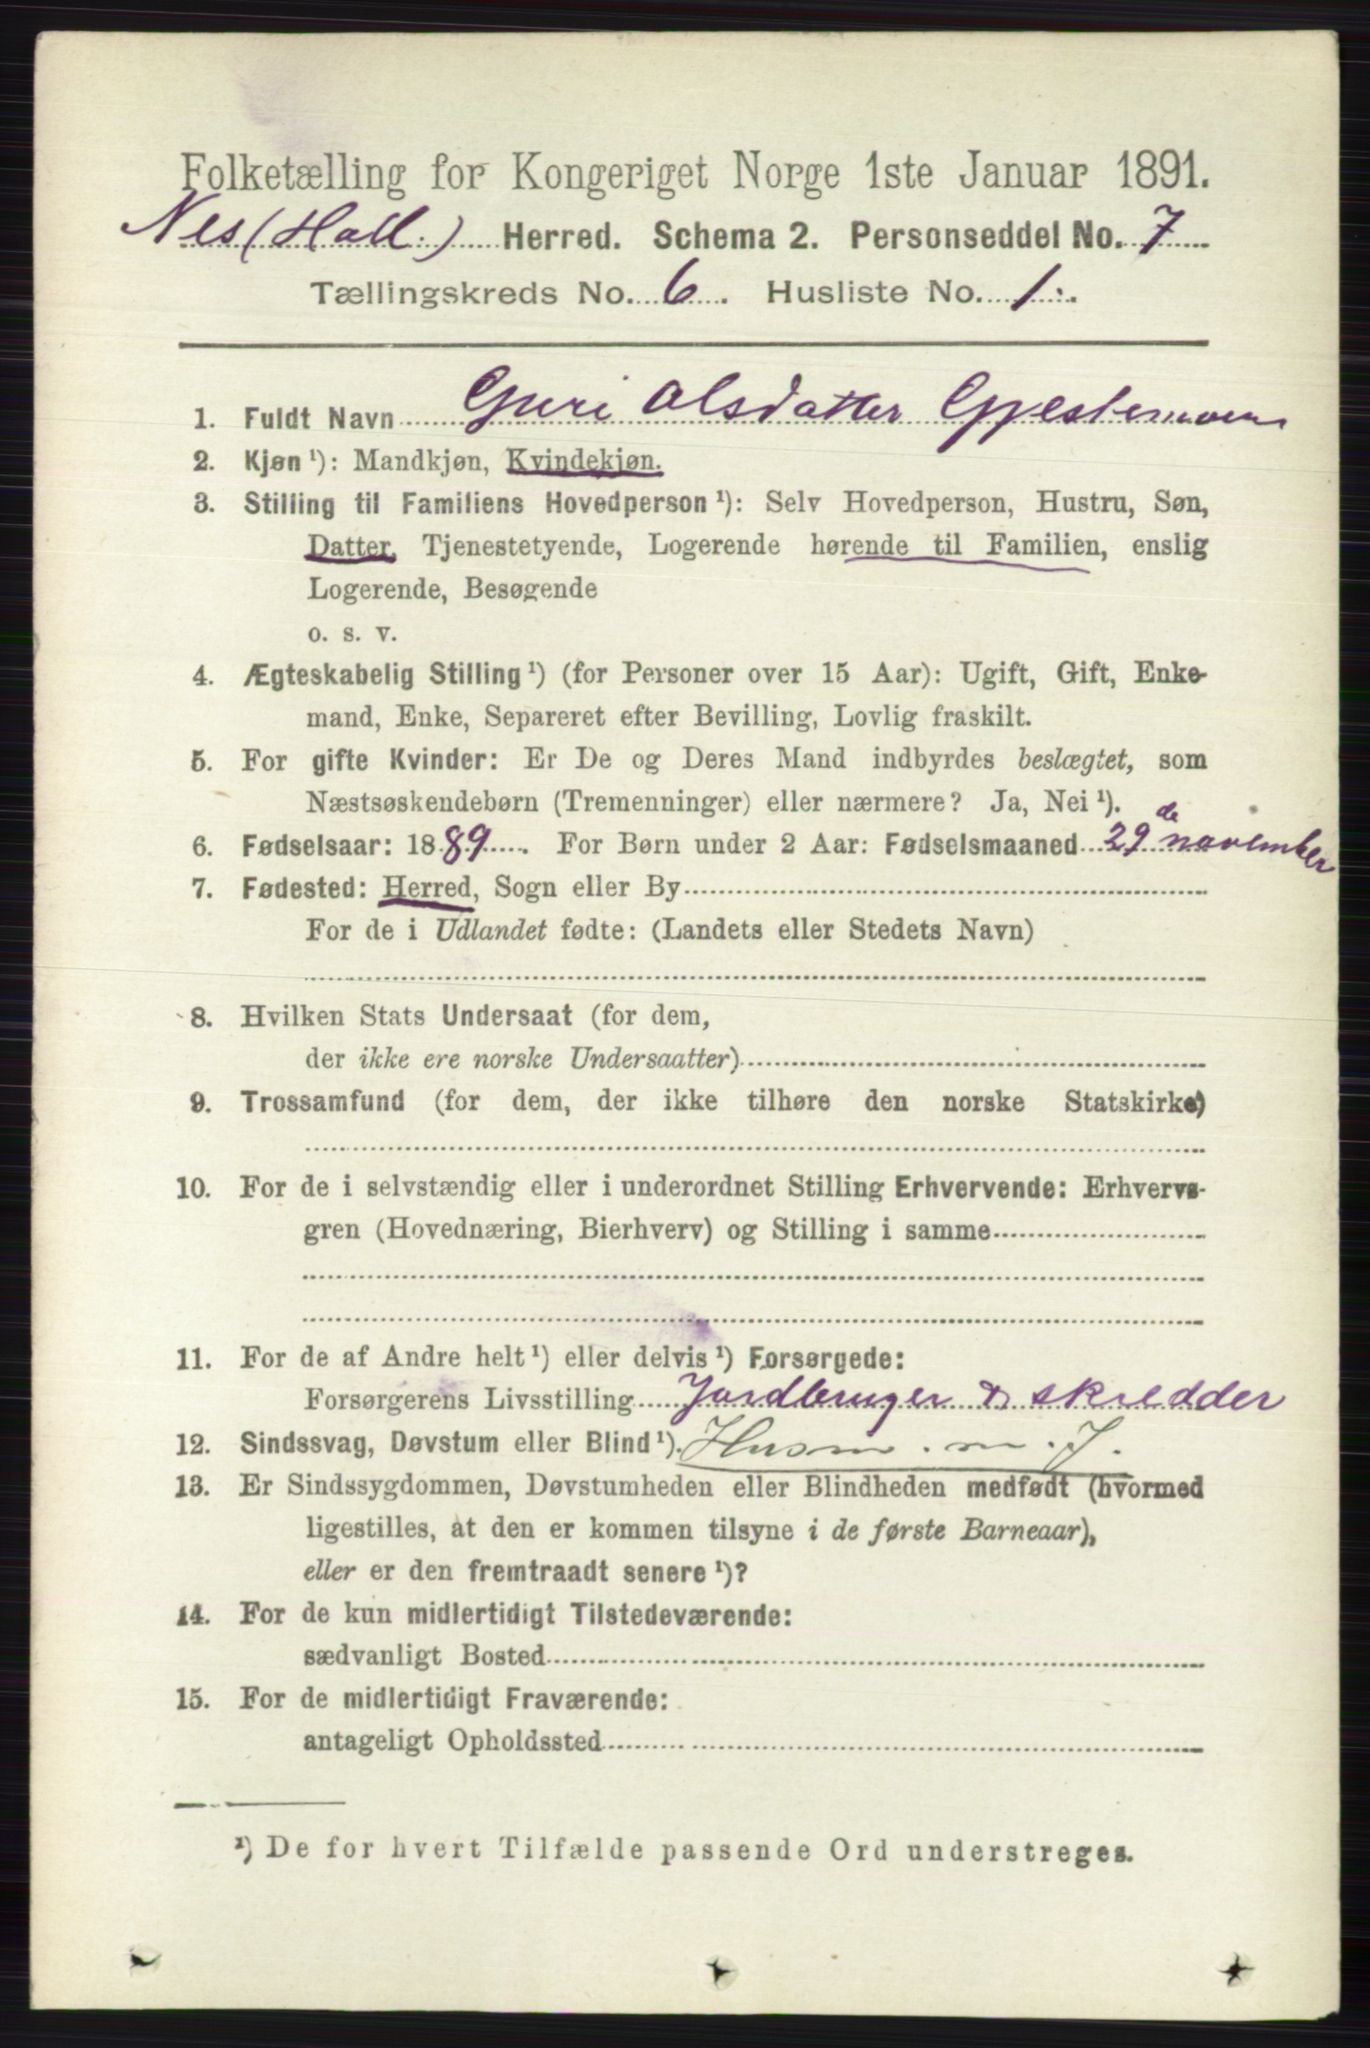 Folketælling for Kongeriget Norge 1ste Januar 1891.
Nes (Hall.) Herred. Schema 2. Personseddel No. 7
Tællingskreds No. 6. Husliste No. 1.
1. Fuldt Navn Guri Olsdatter
2. Kjøn ¹): Mandkjøn, Kvindekjøn.
3. Stilling til Familiens Hovedperson ¹): Selv Hovedperson, Hustru, Søn,
Datter, Tjenestetyende, Logerende hørende til Familien, enslig
Logerende, Besøgende
o. s. v.
4. Ægteskabelig Stilling ¹) (for Personer over 15 Aar): Ugift, Gift, Enke-
mand, Enke, Separeret efter Bevilling, Lovlig fraskilt.
5. For gifte Kvinder: Er De og Deres Mand indbyrdes beslægtet, som
Næstsøskendebørn (Tremenninger) eller nærmere? Ja, Nei ¹).
6. Fødselsaar: 1889. For Børn under 2 Aar: Fødselsmaaned 29de november
7. Fødested: Herred, Sogn eller By
For de i Udlandet fødte: (Landets eller Stedets Navn)
8. Hvilken Stats Undersaat (for dem,
der ikke ere norske Undersaatter)
9. Trossamfund (for dem, der ikke tilhøre den norske Statskirke)
10. For de i selvstændig eller i underordnet Stilling Erhvervende: Erhvervs-
gren (Hovednæring, Bierhverv) og Stilling i samme
11. For de af Andre helt ¹) eller delvis ¹) Forsørgede:
Forsørgerens Livsstilling Jordbruger & skredder
12. Sindssvag, Døvstum eller Blind ¹). Husm. m. J.
13. Er Sindssygdommen, Døvstumheden eller Blindheden medfødt (hvormed
ligestilles, at den er kommen tilsyne i de første Barneaar),
eller er den fremtraadt senere ¹)?
14. For de kun midlertidigt Tilstedeværende:
sædvanligt Bosted
15. For de midlertidigt Fraværende:
antageligt Opholdssted
¹) De for hvert Tilfælde passende Ord understreges.